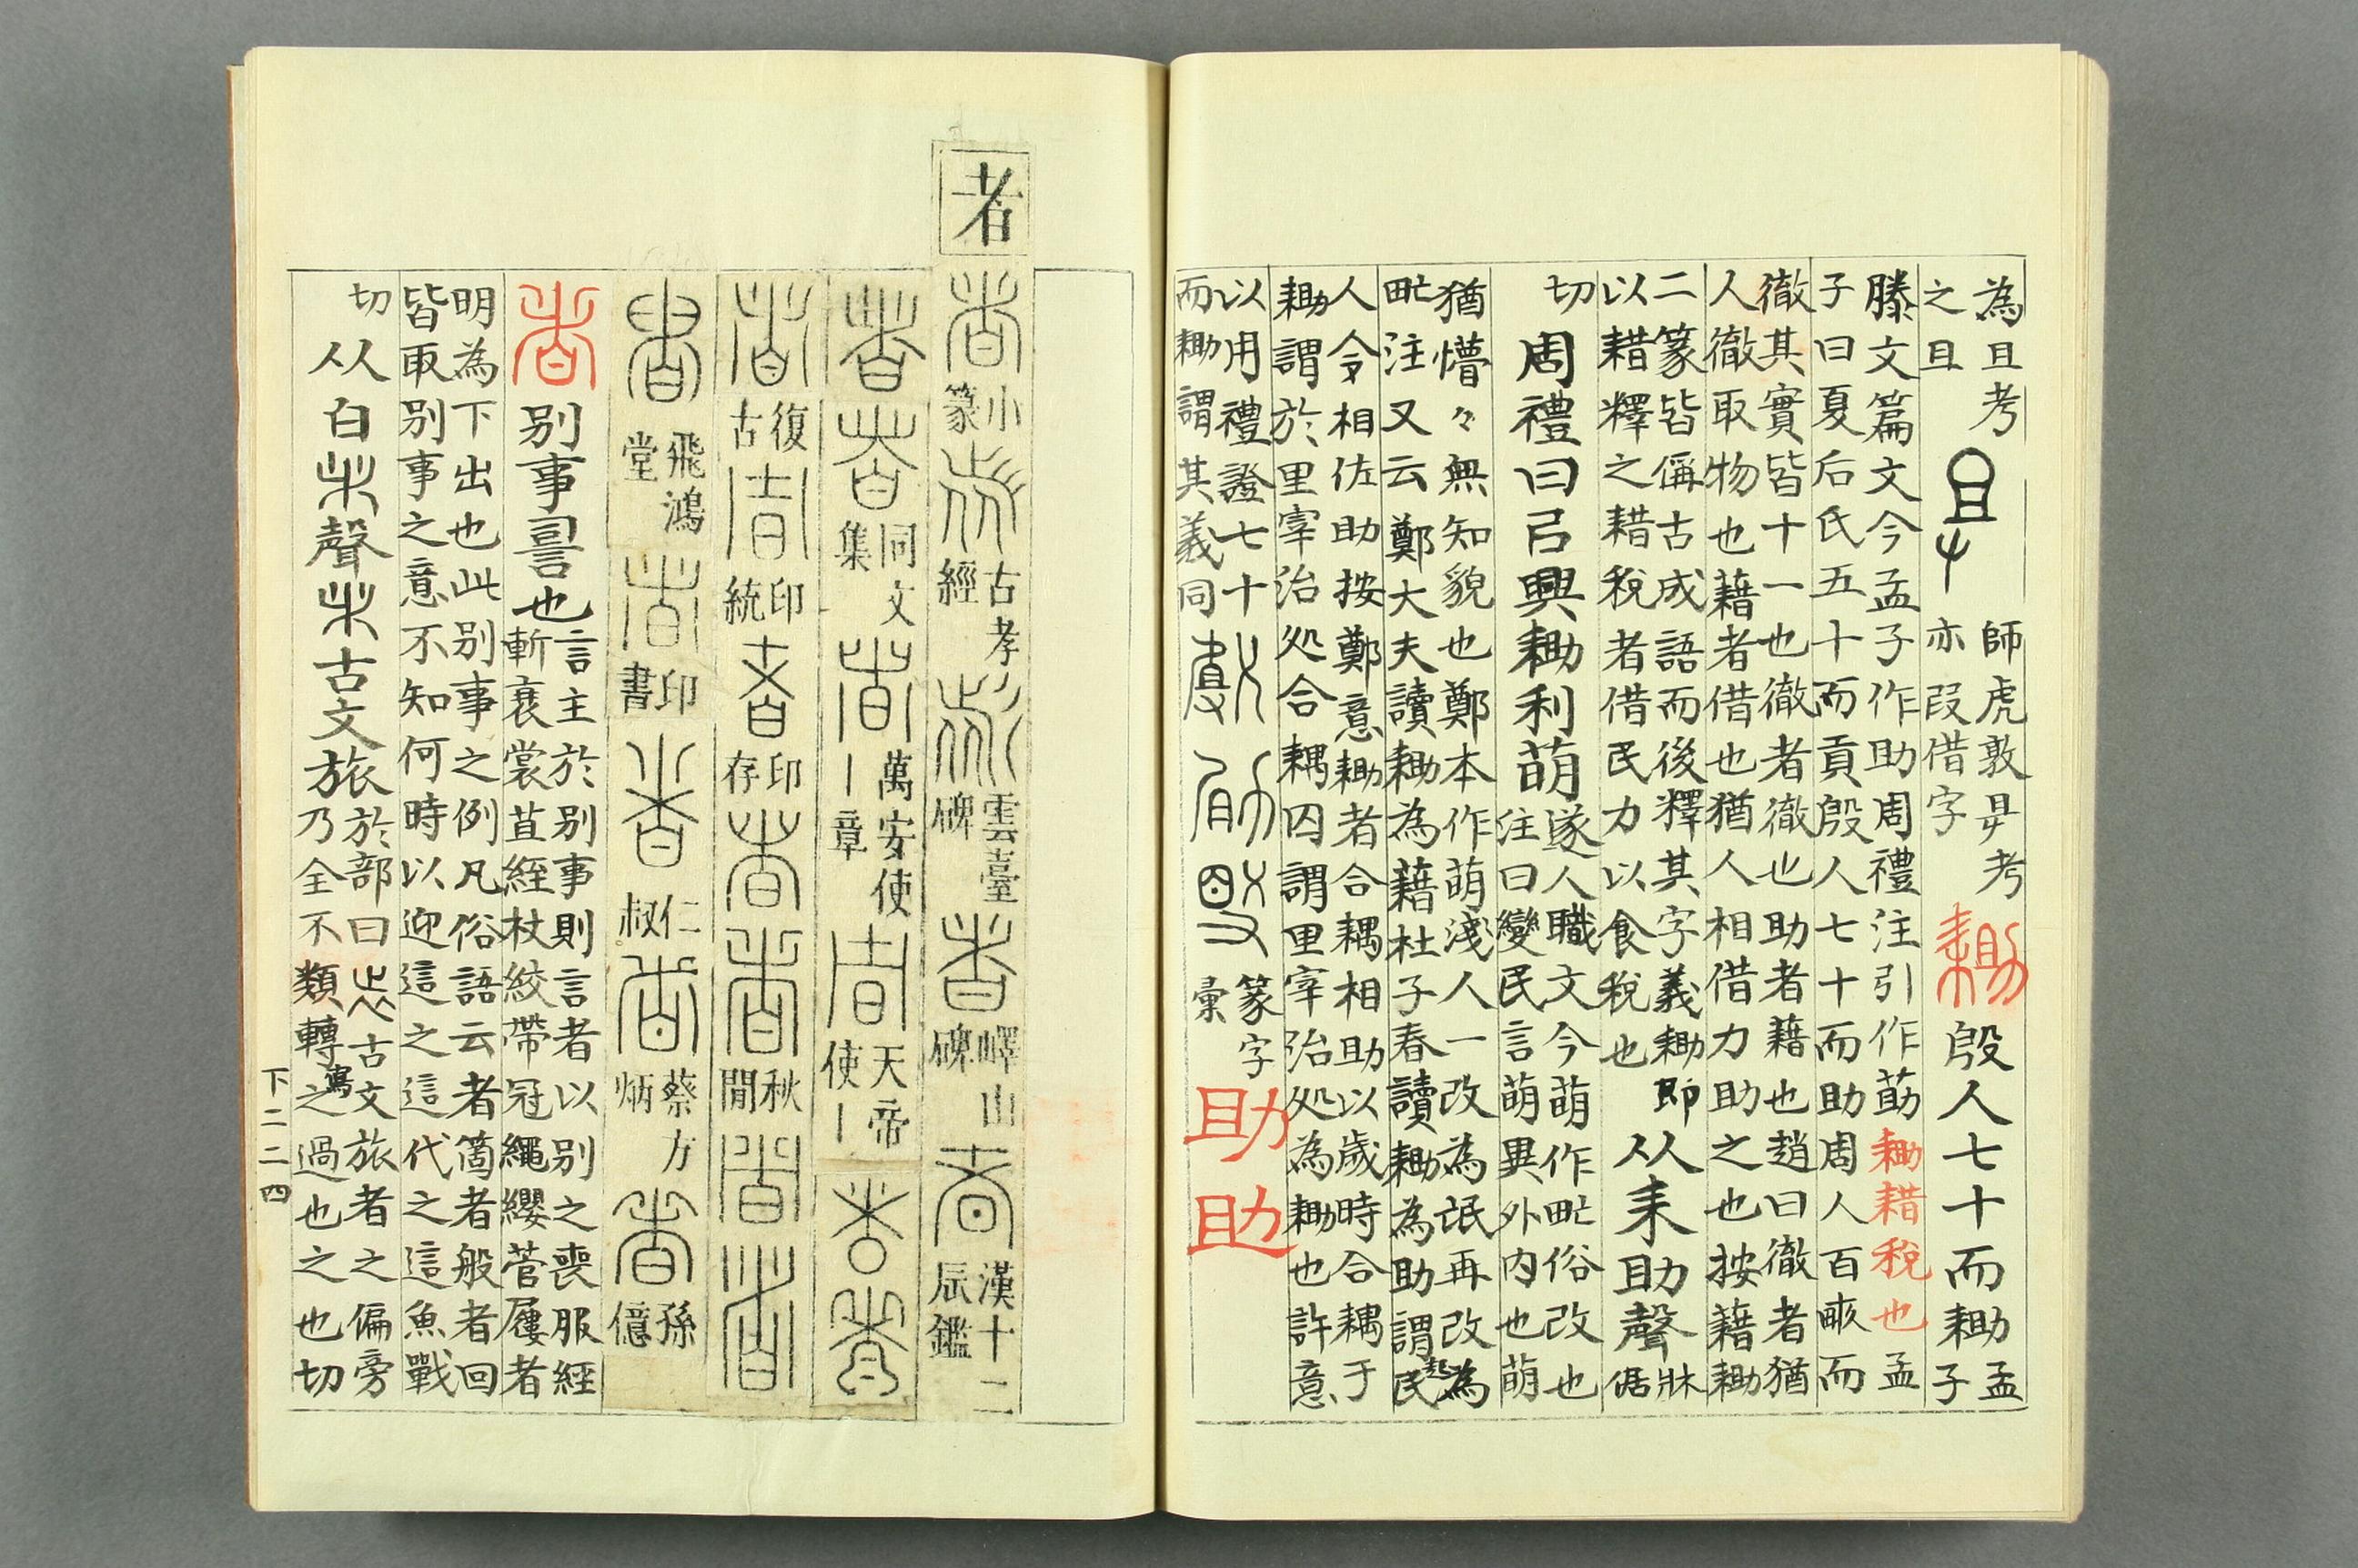 為且考
之且
師虎敦𢍰考
亦叚借字
耡
殷人七十而耡
孟
子
滕文篇文今孟子作助周禮注引作莇耡耤稅也孟
子曰夏后氏五十而貢殷人七十而助周人百畝而
徹其實皆十一也徹者徹也助者藉也趙曰徹者猶
人徹取物也藉者借也猶人相借力助之也按藉耡
二篆皆偁古成語而後釋其字義耡即
以耤釋之耤稅者借民力以食稅也
从耒助聲
牀
倨
切
周禮曰㠯興耡利萌
遂人職文今萌作甿俗改也
注曰變民言萌異外内也萌
猶懵々無知貌也鄭本作萌淺人一改為氓再改為
甿注又云鄭大夫讀耡為藉杜子春讀耡為助謂起民
人令相佐助按鄭意耡者合耦相助以歲時合耦于
耡謂於里宰治処合耦因謂里宰治処為耡也許意
以用禮證七十
而耡謂其義同
篆字
彙
助
助
者
者
小
篆
古孝
經
雲臺
碑
嶧山
碑
漢十二
辰鑑
同文
集
萬安使
丨章
天帝
使丨
復
古
印
統
印
存
秋
閒
飛鴻
堂
印
書
仁
叔
蔡方
炳
孫
億
者
别事䛐也
言主於别事則言者以别之喪服經
斬衰裳苴絰杖絞帶冠繩纓菅屨者
明為下出也此别事之例凡俗語云者箇者般者回
皆取别事之意不知何時以迎這之這代之這魚戰
切
从白𣥐聲𣥐古文旅
於部曰古文旅者之偏旁
乃全不類轉寫之過也之也切
下二二四